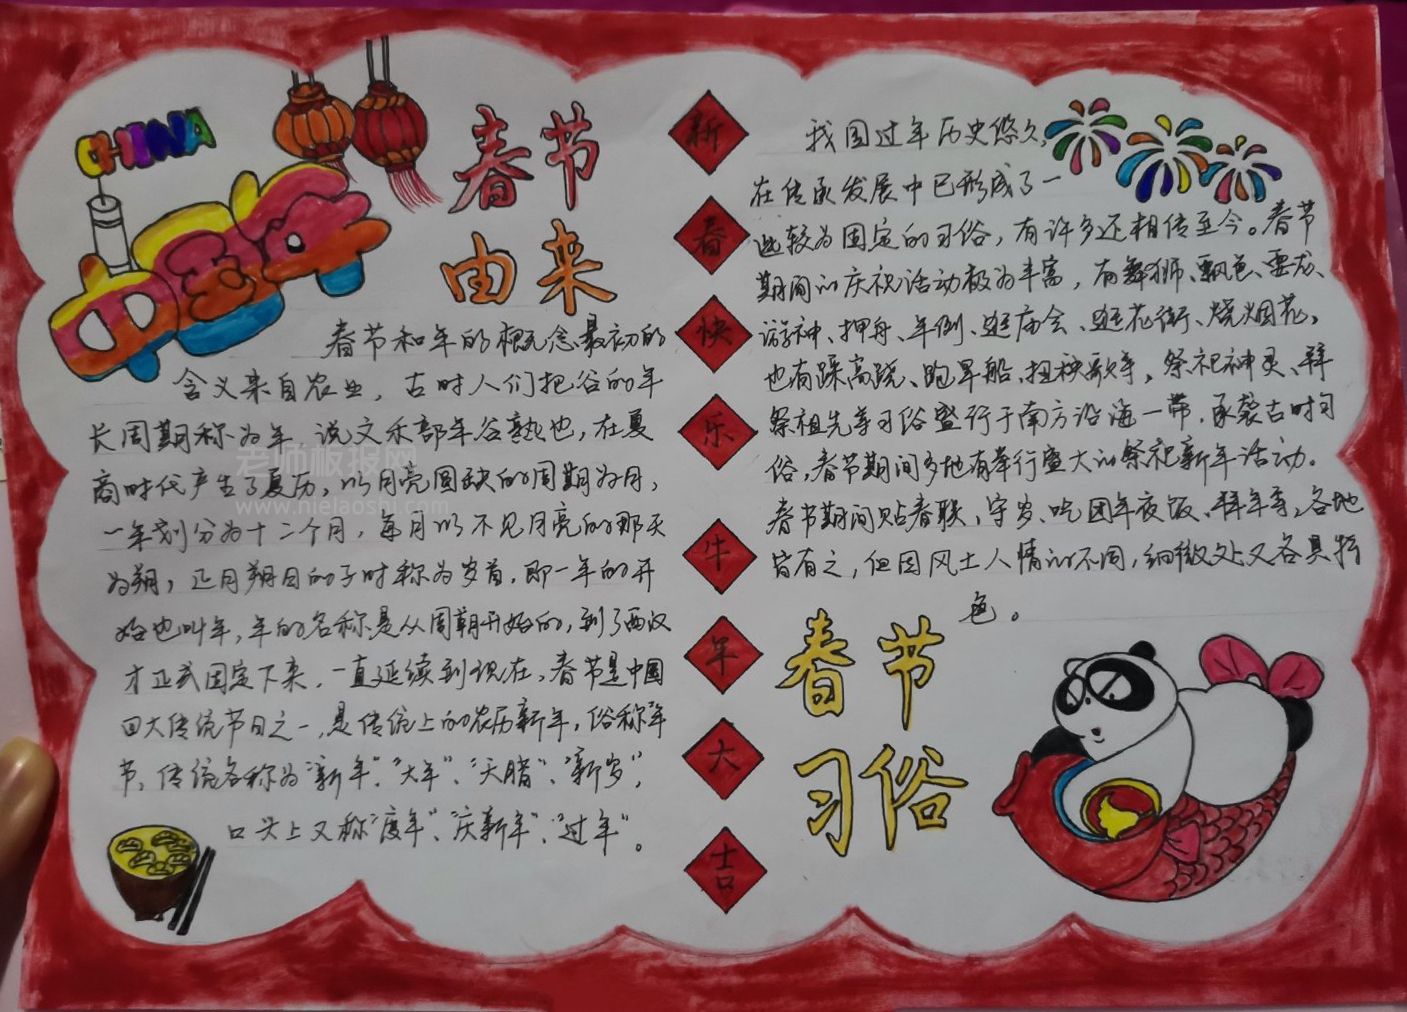 CHINA
中国
春节
由来
春节和年的概念最初的
含义来自农业，古时人们把谷的年
长周期称为年，说文禾部年谷熟也，在夏
商时代产生了夏历，以月亮圆缺的周期为月，
一年划分为十二个月，每月以不见月亮的那天
为朔，正月朔日的子时称为岁首，即一年的开
始也叫年，年的名称是从周朝开始的，到了西汉
才正式固定下来，一直延续到现在，春节是中国
四大传统节日之一，是传统上的农历新年，俗称"年
节，传统名称为"新年"、"大年"、"天腊"、"新岁"，
口头上又称"度年"、"庆新年"、"过年"。
老师板报网
www.nielaoshi.com
新
春
快
乐
牛
年
大
吉
我国过年历史悠久，
在传承发展中已形成了一
些较为固定的习俗，有许多还相传至今。春节
期间的庆祝活动极为丰富，有舞狮、飘色、耍龙、
游神、押舟、年例、逛庙会、逛花街、烧烟花，
也有踩高跷、跑旱船、扭秧歌等，祭祀神灵、拜
祭祖先等习俗盛行于南方沿海一带，承袭古时习
俗，春节期间多地有举行盛大的祭祀新年活动。
春节期间贴春联、守岁、吃团年夜饭、拜年等，各地
皆有之，但因风土人情的不同，细微处又各具特
色。
春节
习俗